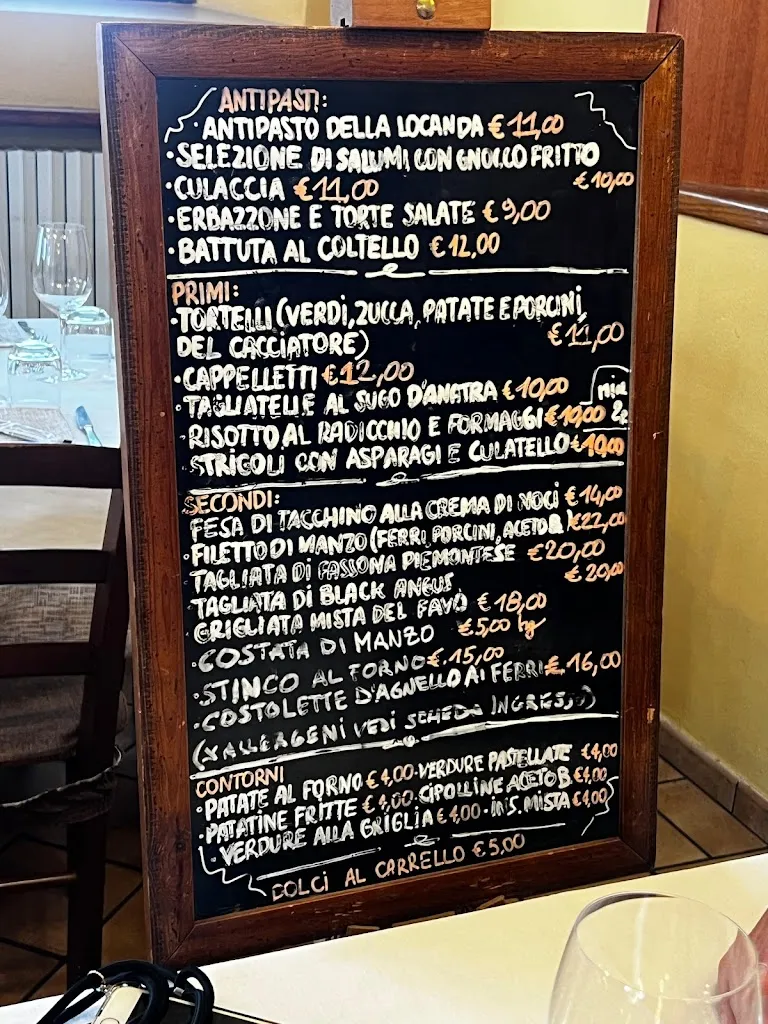 ANTIPASTI:
• ANTIPASTO DELLA LOCANDA €11,00
• SELEZIONE DI SALUMI CON GNOCCO FRITTO
€10,00
• CULACCIA €11,00
• ERBAZZONE E TORTE SALATE €9,00
• BATTUTA AL COLTELLO €12,00
PRIMI:
• TORTELLI (VERDI, ZUCCA, PATATE E PORCINI,
DEL CACCIATORE) €11,00
• CAPPELLETTI €12,00
• TAGLIATELLE AL SUGO D'ANATRA €10,00
• RISOTTO AL RADICCHIO E FORMAGGI €10,00 min 2
• STRIGOLI CON ASPARAGI E CULATELLO €10,00
SECONDI:
FESA DI TACCHINO ALLA CREMA DI NOCI €14,00
• FILETTO DI MANZO (FERRI, PORCINI, ACETO B.) €22,00
TAGLIATA DI FASSONA PIEMONTESE €20,00
TAGLIATA DI BLACK ANGUS €20,00
GRIGLIATA MISTA DEL FAVO €18,00
• COSTATA DI MANZO €5,00 hg
• STINCO AL FORNO €.15,00
• COSTOLETTE D'AGNELLO AI FERRI €.16,00
(X ALLERGENI VEDI SCHEDA INGRESSO)
CONTORNI
• PATATE AL FORNO €4,00 • VERDURE PASTELLATE €4,00
• PATATINE FRITTE €4,00 • CIPOLLINE ACETO B. €4,00
• VERDURE ALLA GRIGLIA €4,00 • INS. MISTA €4,00
DOLCI AL CARRELLO €5,00